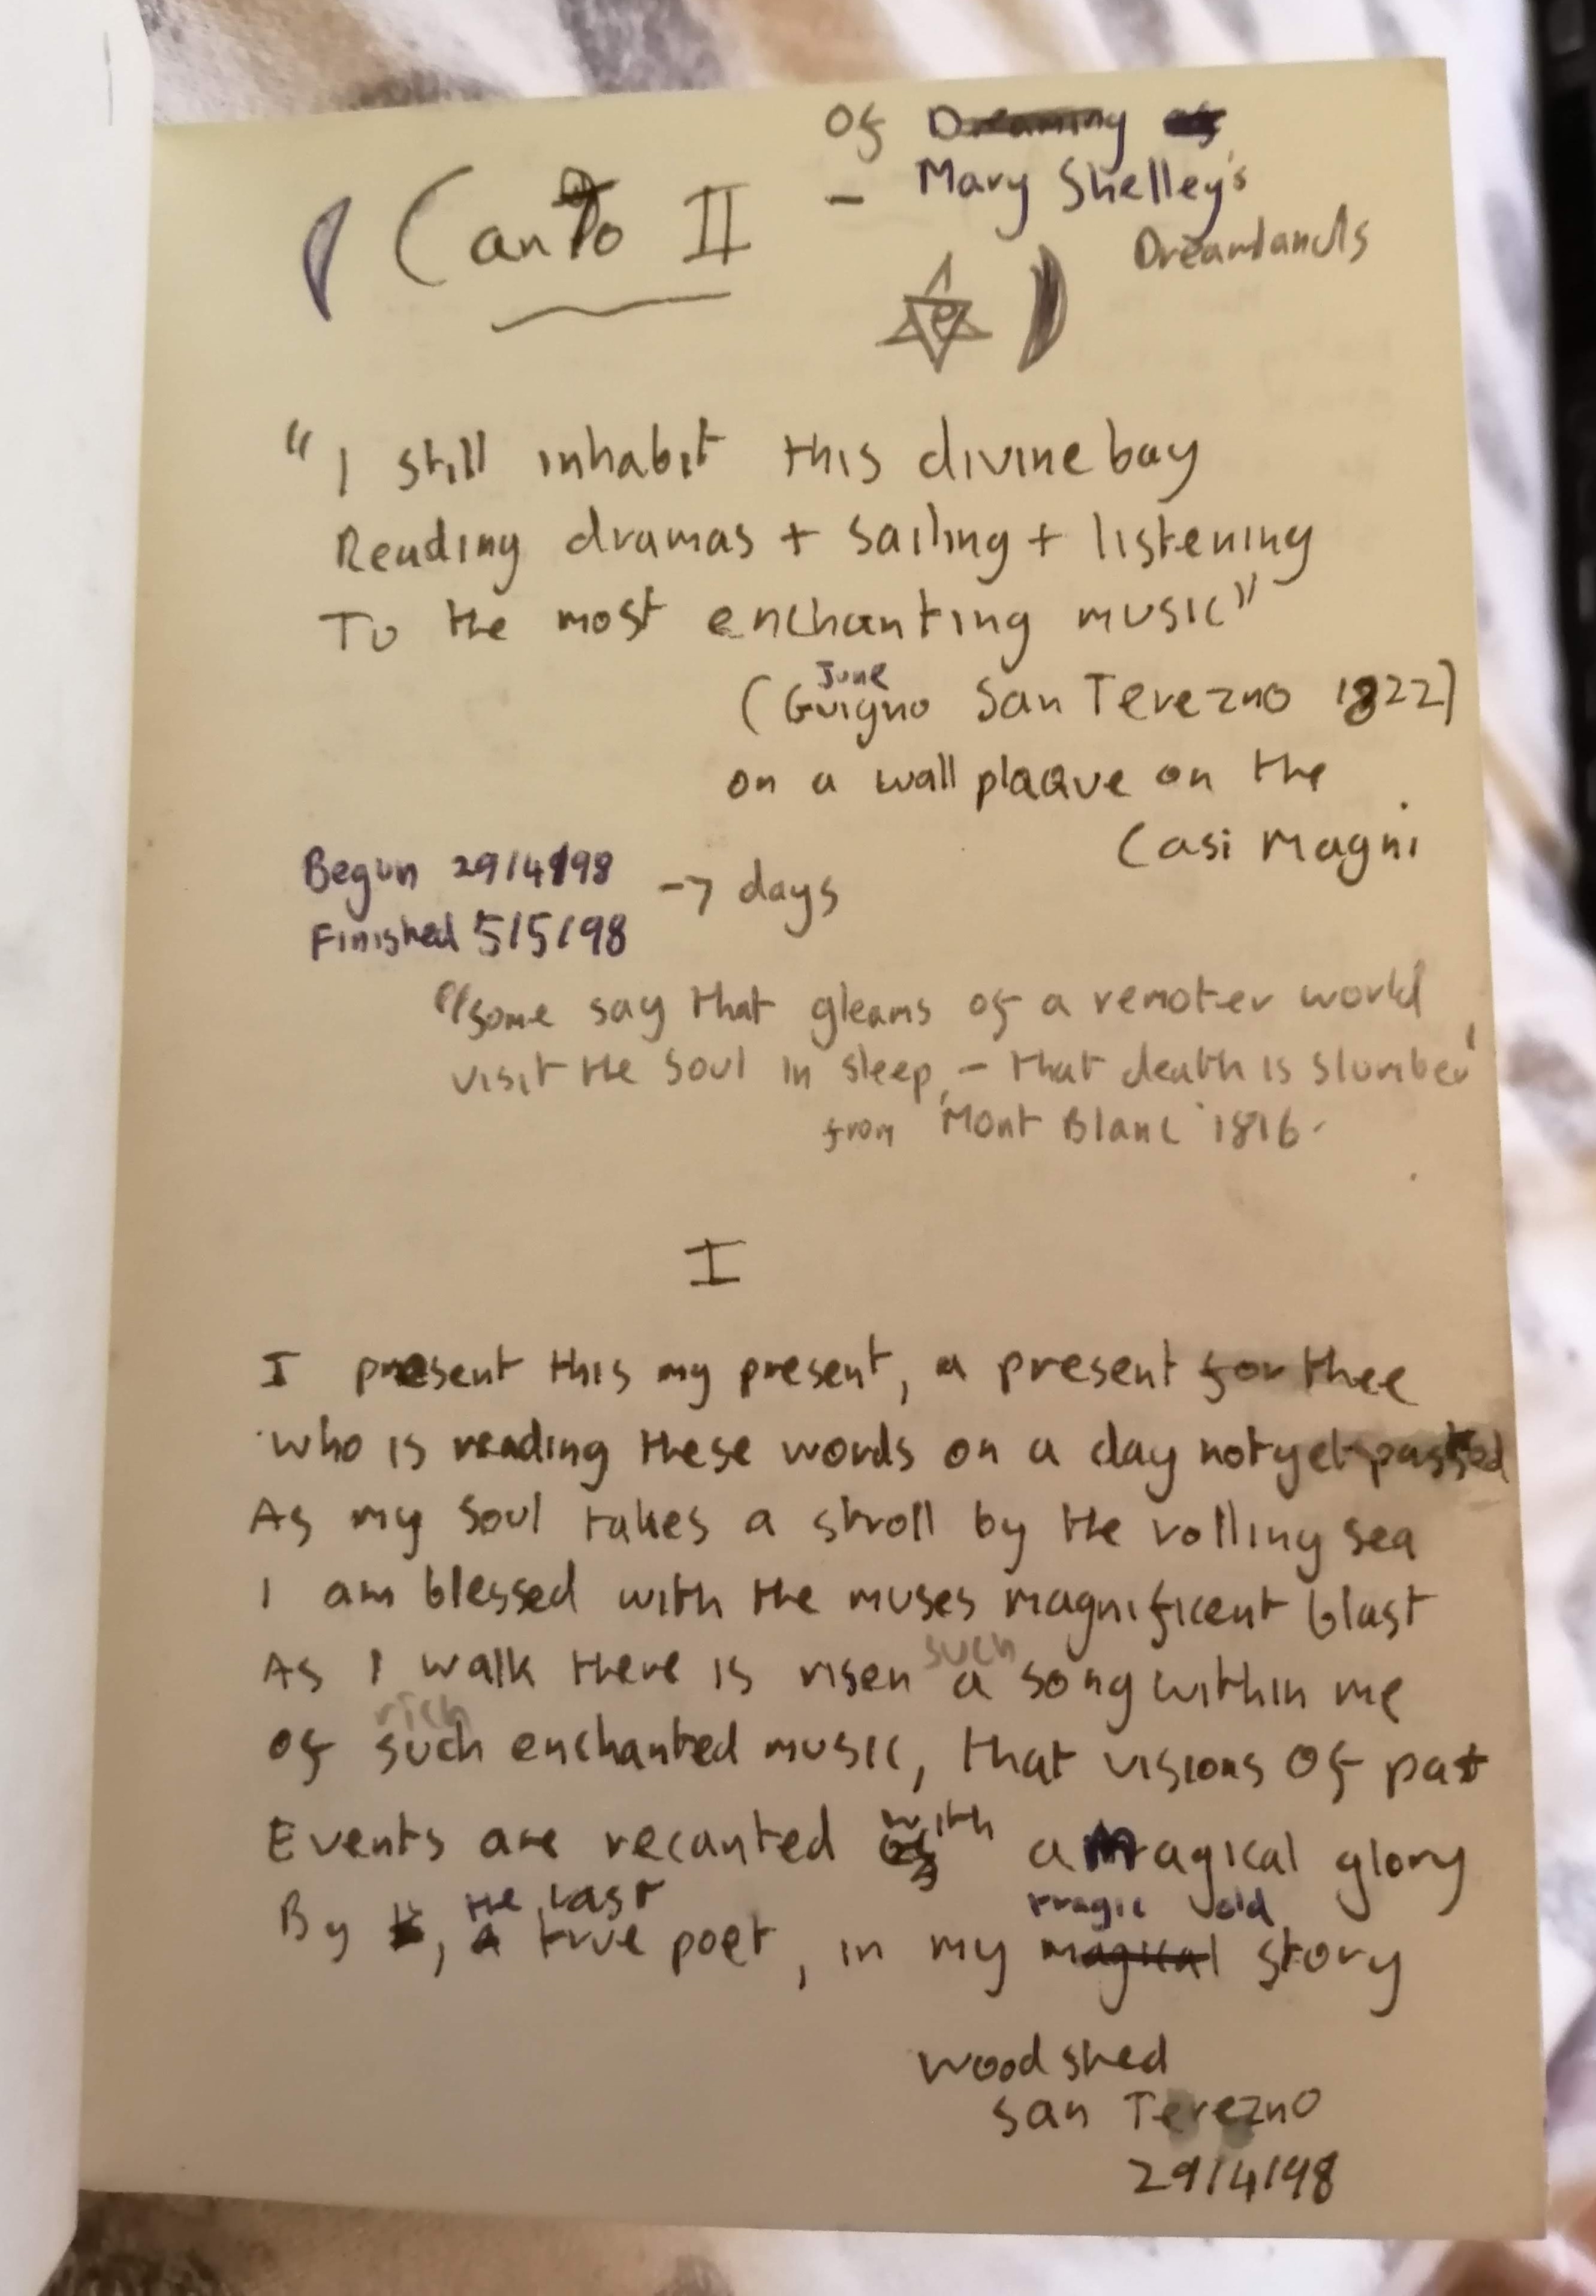 Of Dreaming
Canto II - Mary Shelley's
Dreamlands
e
"I still inhabit this divine bay
Reading dramas + sailing + listening
To the most enchanting music"
June
(Guigno San Terezno 1822)
on a wall plaque on the
Casi Magni
Begun 29/4/98
Finished 5/5/98 -7 days
"some say that gleams of a remoter world
visit the soul in sleep, - that death is slumber'
from 'Mont Blanc' 1816.
I
I present this my present, a present for thee
Who is reading these words on a day not yet passed
As my soul takes a stroll by the rolling sea
I am blessed with the muses magnificent blast
such
As I walk there is risen a song within me
rich
Of such enchanted music, that visions of past
with
Events are recanted of a magical glory
the last tragic old
By , a true poet, in my magical story
Woodshed
San Terezno
29/4/98